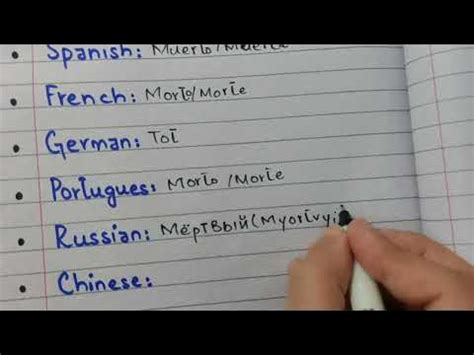 Spanish: Muerto/Muerte
French: Morto/Morte
German: Tot
Portugues: Morto /Morte
Russian: Мёртвый(Myortvyi
Chinese: